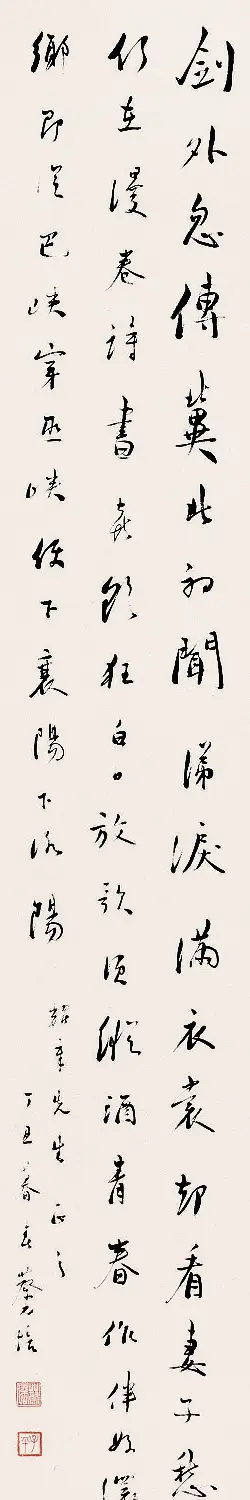 劍外忽傳冀北初聞涕淚滿衣裳却看妻子愁
何在漫卷詩書喜欲狂白日放歌須縱酒青春作伴好還
鄉即從巴峽穿巫峽便下襄陽下洛陽
章先生正之
丁丑春季蔡元培